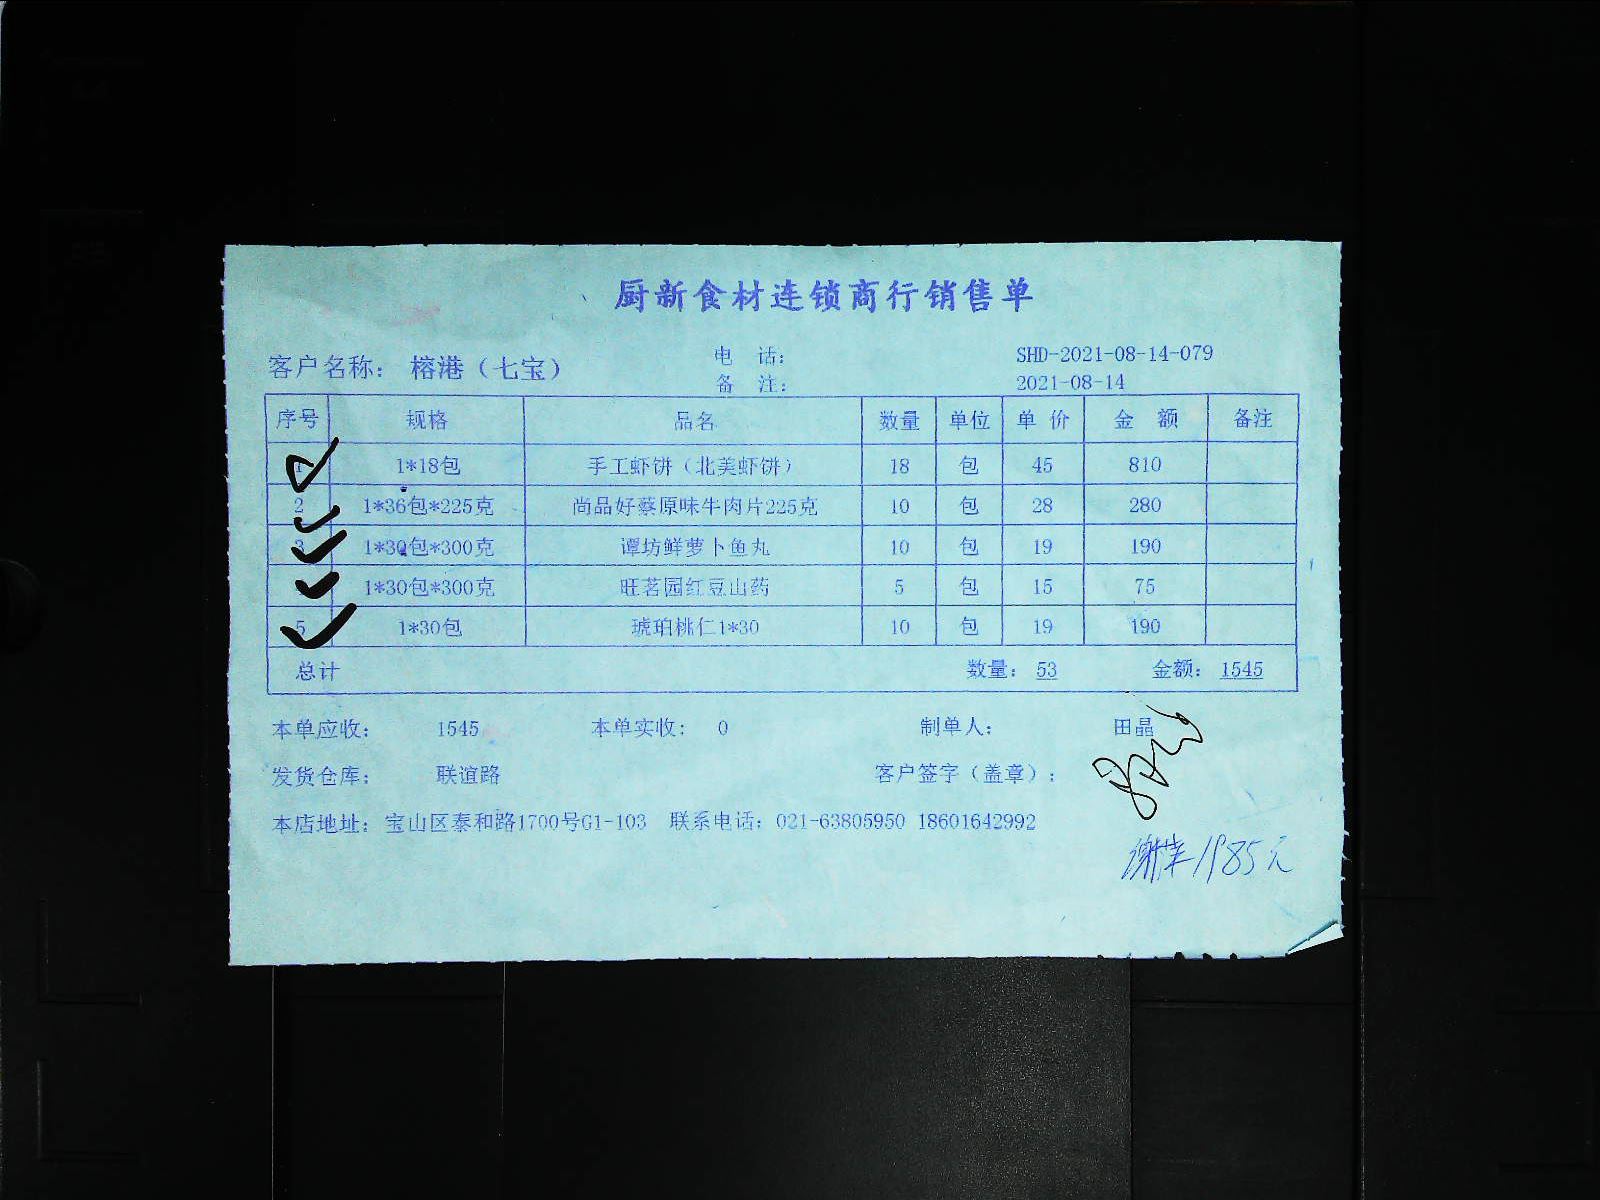 厨新食材连锁商行销售单
客户名称： 榕港（七宝） 电 话： SHD-2021-08-14-079
备 注： 2021-08-14
序号 规格 品名 数量 单位 单价 金 额 备注
1 1*18包 手工虾饼（北美虾饼） 18 包 45 810
2 1*36包*225克 尚品好蔡原味牛肉片225克 10 包 28 280
3 1*30包*300克 谭坊鲜萝卜鱼丸 10 包 19 190
1*30包*300克 旺茗园红豆山药 5 包 15 75
5 1*30包 琥珀桃仁1*30 10 包 19 190
总计 数量： 53 金额： 1545
本单应收： 1545 本单实收： 0 制单人： 田晶
发货仓库： 联谊路 客户签字（盖章）：
本店地址：宝山区泰和路1700号G1-103 联系电话：021-63805950 18601642992
1985元